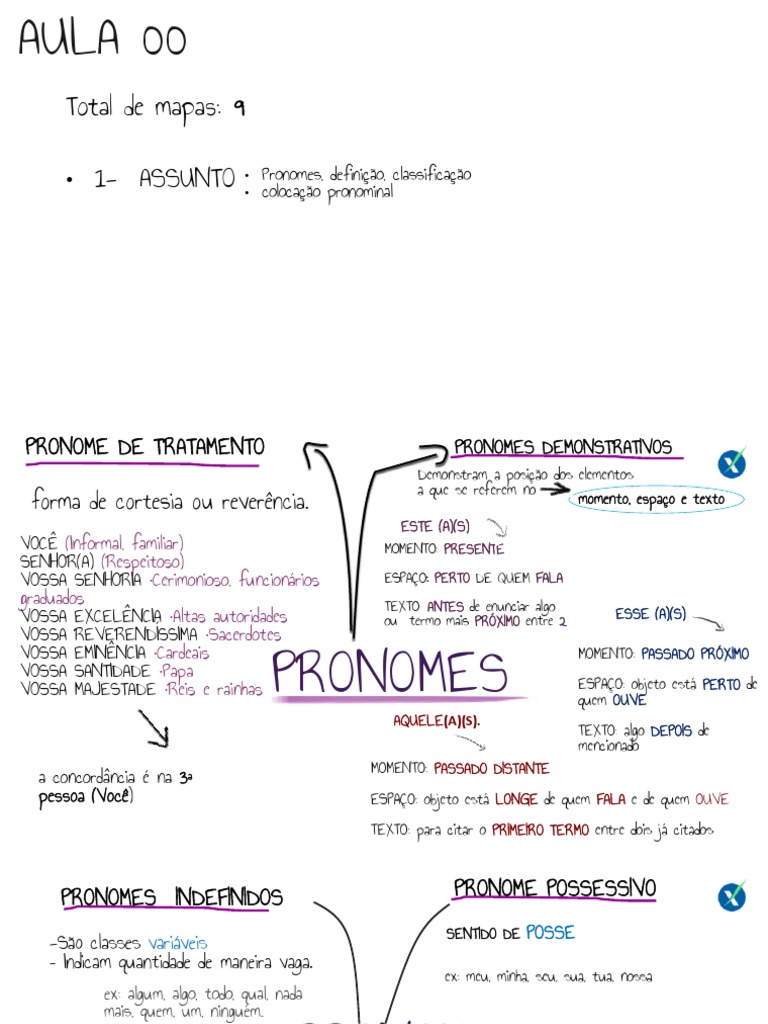 AULA 00
Total de mapas: 9
• 1- ASSUNTO • Pronomes, definição, classificação
• colocação pronominal
PRONOME DE TRATAMENTO
forma de cortesia ou reverência.
VOCÊ (Informal, familiar)
SENHOR(A) (Respeitoso)
VOSSA SENHORIA •Cerimonioso, funcionários
graduados
VOSSA EXCELÊNCIA •Altas autoridades
VOSSA REVERENDÍSSIMA •Sacerdotes
VOSSA EMINÊNCIA •Cardeais
VOSSA SANTIDADE •Papa
VOSSA MAJESTADE •Reis e rainhas
a concordância é na 3ª
pessoa (Você)
PRONOMES DEMONSTRATIVOS
Demonstram a posição dos elementos
a que se referem no
momento, espaço e texto
ESTE (A)(S)
MOMENTO: PRESENTE
ESPAÇO: PERTO DE QUEM FALA
TEXTO ANTES de enunciar algo
ou termo mais PRÓXIMO entre 2
ESSE (A)(S)
MOMENTO: PASSADO PRÓXIMO
ESPAÇO: objeto está PERTO de
quem OUVE
TEXTO: algo DEPOIS de
mencionado
PRONOMES
AQUELE(A)(S).
MOMENTO: PASSADO DISTANTE
ESPAÇO: objeto está LONGE de quem FALA e de quem OUVE
TEXTO: para citar o PRIMEIRO TERMO entre dois já citados
PRONOMES INDEFINIDOS
-São classes variáveis
- Indicam quantidade de maneira vaga.
ex: algum, algo, todo, qual, nada
mais, quem, um, ninguém.
PRONOME POSSESSIVO
SENTIDO DE POSSE
ex: meu, minha, seu, sua, tua, nossa